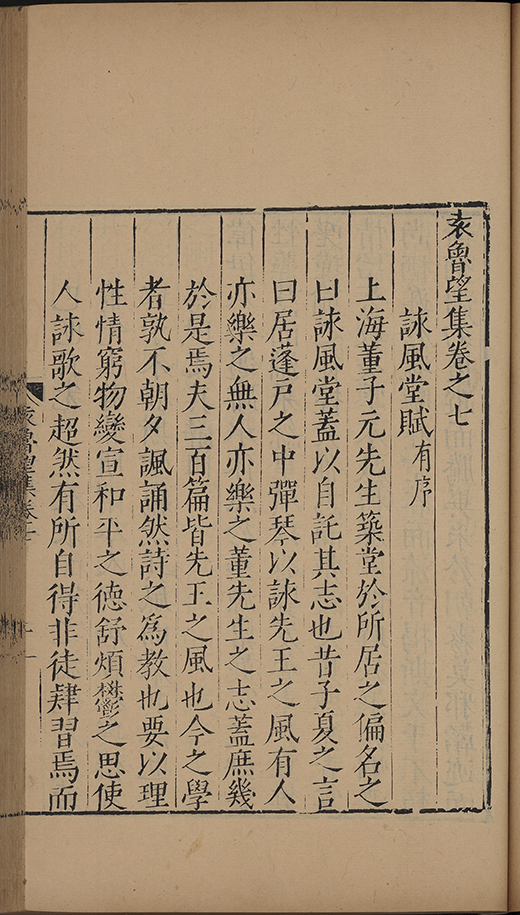 袁魯望集卷之七
詠風堂賦有序
上海董子元先生築堂於所居之偏名之
曰詠風堂蓋以自託其志也昔子夏之言
曰居蓬戶之中彈琴以詠先王之風有人
亦樂之無人亦樂之董先生之志蓋庶幾
於是焉夫三百篇皆先王之風也今之學
者孰不朝夕諷誦然詩之為教也要以理
性情窮物變宣和平之徳舒煩鬱之思使
人詠歌之超然有所自得非徒肄習焉而
袁魯望集卷七
一